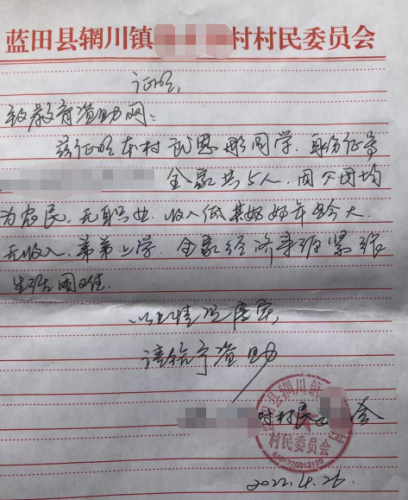 蓝田县辋川镇 村村民委员会
证明
致教育资助网:
兹证明本村 思彤同学,身份证号
全家共5人,因 均
为农民,无职业,收入低 年龄大,
无收入,弟弟上学,全家经济
生活困难。
以上情况属实,
请给予资助
村村民 会
县辋川镇
村民委员会
2022.4.26